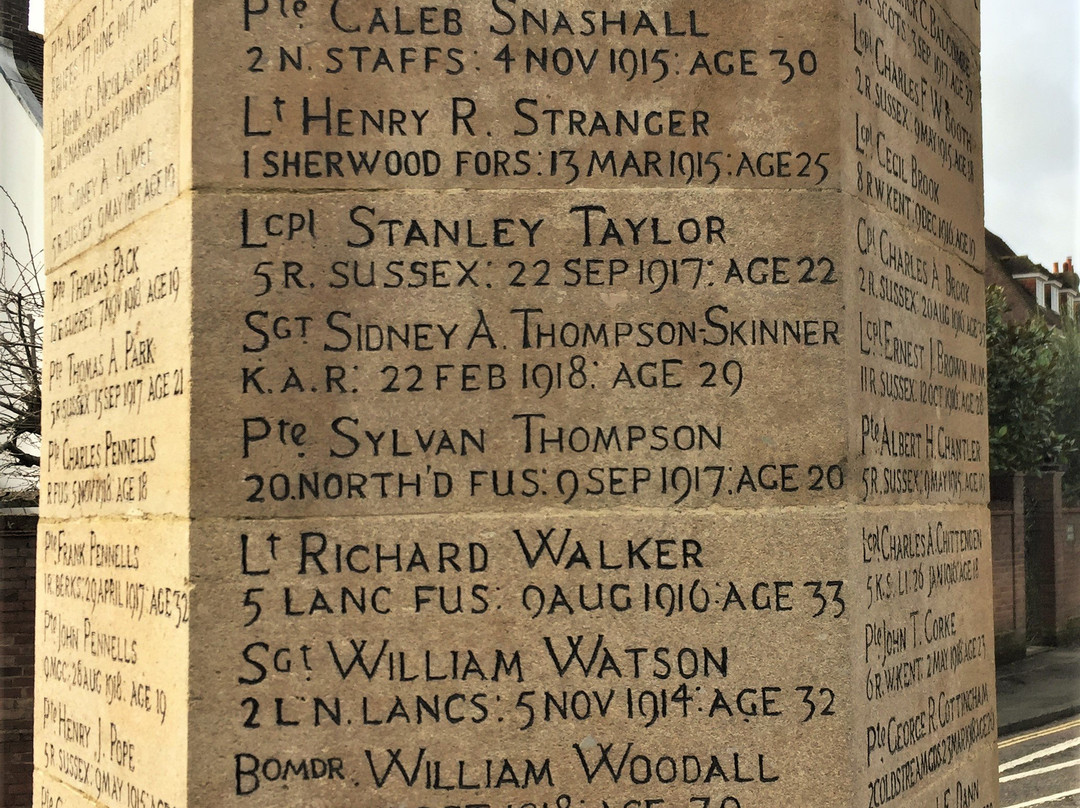 Pte ALBERT J.
17 JUNE 1917
Lt JOHN G. NICOLAS
12 JAN 1916
Pte SIDNEY A. OLIVER
5 R. SUSSEX: 9 MAY 1915 AGE 19
Pte THOMAS PACK
7 NOV 1918. AGE 19
Pte THOMAS A. PARK
5 R. SUSSEX: 15 SEP 1917 AGE 21
Pte CHARLES PENNELLS
R. FUS: 5 NOV 1918. AGE 18
Pte FRANK PENNELLS
1 R. BERKS: 29 APRIL 1917: AGE 32
Pte JOHN PENNELLS
MGC: 28 AUG 1918. AGE 19
Pte HENRY J. POPE
5 R. SUSSEX: 9 MAY 1915
Pte CALEB SNASHALL
2 N. STAFFS: 4 NOV 1915: AGE 30
Lt HENRY R. STRANGER
1 SHERWOOD FORS: 13 MAR 1915: AGE 25
Lcpl STANLEY TAYLOR
5 R. SUSSEX: 22 SEP 1917: AGE 22
SGT SIDNEY A. THOMPSON-SKINNER
K.A.R: 22 FEB 1918: AGE 29
Pte SYLVAN THOMPSON
20.NORTH'D FUS: 9 SEP 1917: AGE 20
Lt RICHARD WALKER
5 LANC FUS: 9 AUG 1916: AGE 33
SGt WILLIAM WATSON
2 L.N. LANCS: 5 NOV 1914: AGE 32
BOMDR. WILLIAM WOODALL
OCT 1918: AGE
C. BALCOMBE
R. SCOTS: 3 SEP 1917. AGE 23
Lcpl CHARLES F. W. BOOTH
2 R. SUSSEX: 9 MAY 1915. AGE 18
Lcpl CECIL BROOK
8 R.W. KENT: 9 DEC 1916. AGE 19
Cpl CHARLES A. BROOK
2 R. SUSSEX: 20 AUG 1916: AGE
Lcpl ERNEST J. BROWN M.M.
11 R. SUSSEX: 12 OCT 1916: AGE 28
Pte ALBERT H. CHANTLER
5 R. SUSSEX: 9 MAY 1915. AGE
Lcpl CHARLES A. CHITTENDEN
5 K.S.L.I.: 26 JAN 1916: AGE 18
Pte JOHN T. CORKE
6 R.W. KENT: 2 MAY 1918: AGE 23
Pte GEORGE R. COTTINGHAM
2 COLDSTREAM GDS: 23 MAR 1918: AGE
DANN